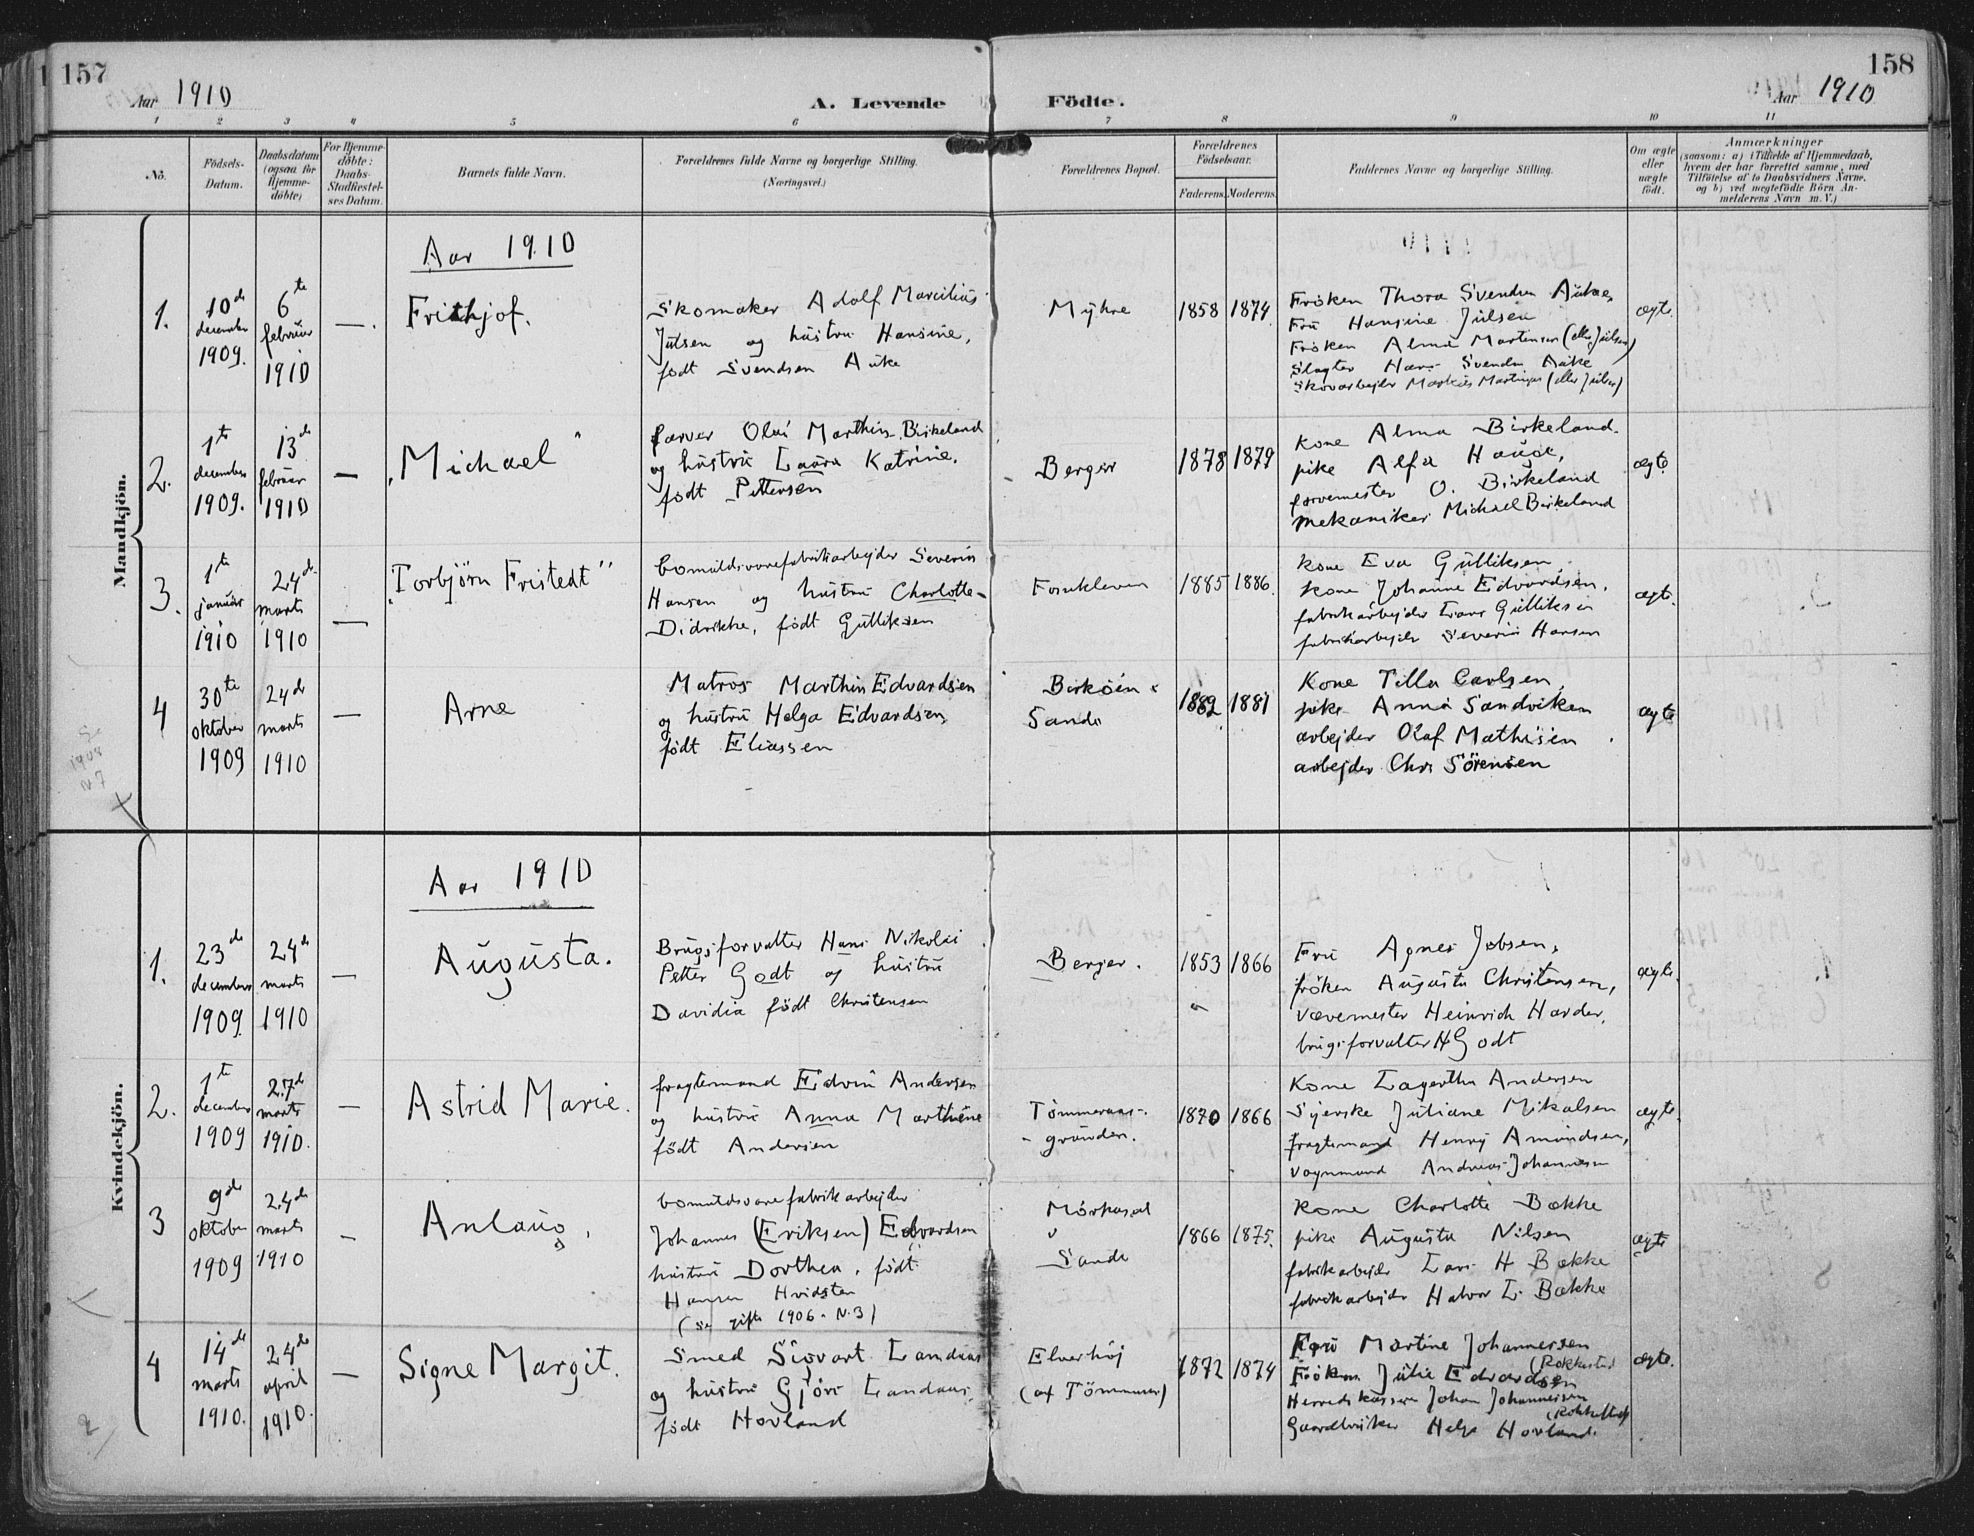 157
Aar 1910
A. Levende
Födte.
158
Aar 1910
1 2 3 4 5 6 7 8 9 10 11
No.
Födsels-
Datum.
Daabsdatum
(ogsaa for
Hjemme-
döbte)
For Hjemme-
döbte:
Daabs-
Stadfæstel-
ses Datum.
Barnets fulde Navn.
Forældrenes fulde Navne og borgerlige Stilling.
(Næringsvei.)
Forældrenes Bopæl.
Forældrenes
Födselsaar.
Faderens. Moderens.
Faddernes Navne og borgerlige Stilling.
Om ægte
eller
uægte
født.
Anmærkninger
(saasom: a) i Tilfælde af Hjemmedaab,
hvem der har forrettet samme, med
Tilföielse af to Daabsvidners Navne,
og b) ved uægtefödte Börn An-
melderens Navn m. V.)
Mandkjön.
Aar 1910
1.
10de
december
1909.
6te
februar
1910
—.
Frithjof.
Skomaker Adolf Marcilius
Julsen og hustru Hansine,
født Svendsen Auke
Myhre
1858
1874
Frøken Thora Svendsen Auke,
Fru Hansine Julsen
Frøken Alma Martinsen (eller Julsen)
Slagter Hans Svendsen Auke
Skovarbejder Markus Martinsen (eller Julsen)
ægte
2.
1te
december
1909.
13de
februar
1910
—
"Michael"
farver Olai Marthin Birkeland
og hustru Laura Katrine,
født Pettersen
Berger
1878
1879
Kone Alma Birkeland.
pike Alfa Hauge,
farvemester O. Birkeland
mekaniker Michael Birkeland
ægte
3.
1te
januar
1910
24de
marts
1910
—
"Torbjørn Fristedt"
bomuldsvarefabrikarbejder Severin
Hansen og hustru Charlotte
Didrikke, født Gulliksen
Fossekleven
1885
1886.
Kone Eva Gulliksen,
Kone Johanne Edvardsen,
fabrikarbejder Lars Gulliksen
fabrikarbejder Severin Hansen
ægte.
4
30te
oktober
1909
24de
marts
1910
—
Arne
Matros Marthin Edvardsen
og hustru Helga Edvardsen,
født Eliassen
Sande
1882
1881
Kone Tilla Carlsen,
pike Anna Sandviken
arbejder Olaf Mathisen
arbejder Chr. Sörensen
ægte
Kvindekjön.
Aar 1910
1.
23de
december
1909.
24de
marts
1910
—
Augusta.
Brugsforvalter Hans Nikolai
Petter Godt og hustru
Davidia født Christensen
Berger.
1853
1866
Fru Agnes Jebsen,
frøken Augusta Christensen,
vævemester Heinrich Harder,
brugsforvalter H Godt
ægte.
2.
1te
december
1909
27de
marts
1910.
—
Astrid Marie.
fragtemand Edvin Andersen
og hustru Anna Marthine
født Andersen
Tømmeraas-
grunden.
1870
1866
Kone Lagertha Andersen
Syerske Juliane Mikalsen
fragtemand Henry Amundsen,
Vognmand Andreas Johannesen
ægte.
3
9de
oktober
1909
24de
marts
1910
—
Anlaug,
bomuldsvarefabrikarbejder
Johannes (Eriksen) Edvardsen
hustru Dorthea, født
Hansen Hvidsten
(se gifte 1906. N. 3)
Sande
1866
1875.
Kone Charlotte Bakke
pike Augusta Nilsen
fabrikarbejder Lars H Bakke
fabrikarbejder Halvor L. Bakke
ægte
4
14de
marts
1910.
24de
april
1910.
—
Signe Margit.
Smed Sigvart Landaas
og hustru Gjøri Landaas,
født Hovland
Elverhöj
1872
1874
Fru Martine Johannesen
(Rokkestad
Frøken Julie Edvardsen
Herredskasserer Johan Johannesen
(Rokkestad)
Gaardbruker Helge Hovland.
ægte.